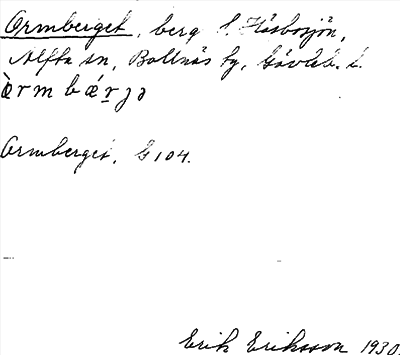 Ormberget, berg S. Håsbosjön,
Alfta sn, Bollnäs tg, Gävleb. l.
òrmbǽrjə
Ormberget, G 104.
Erik Eriksson 1930.